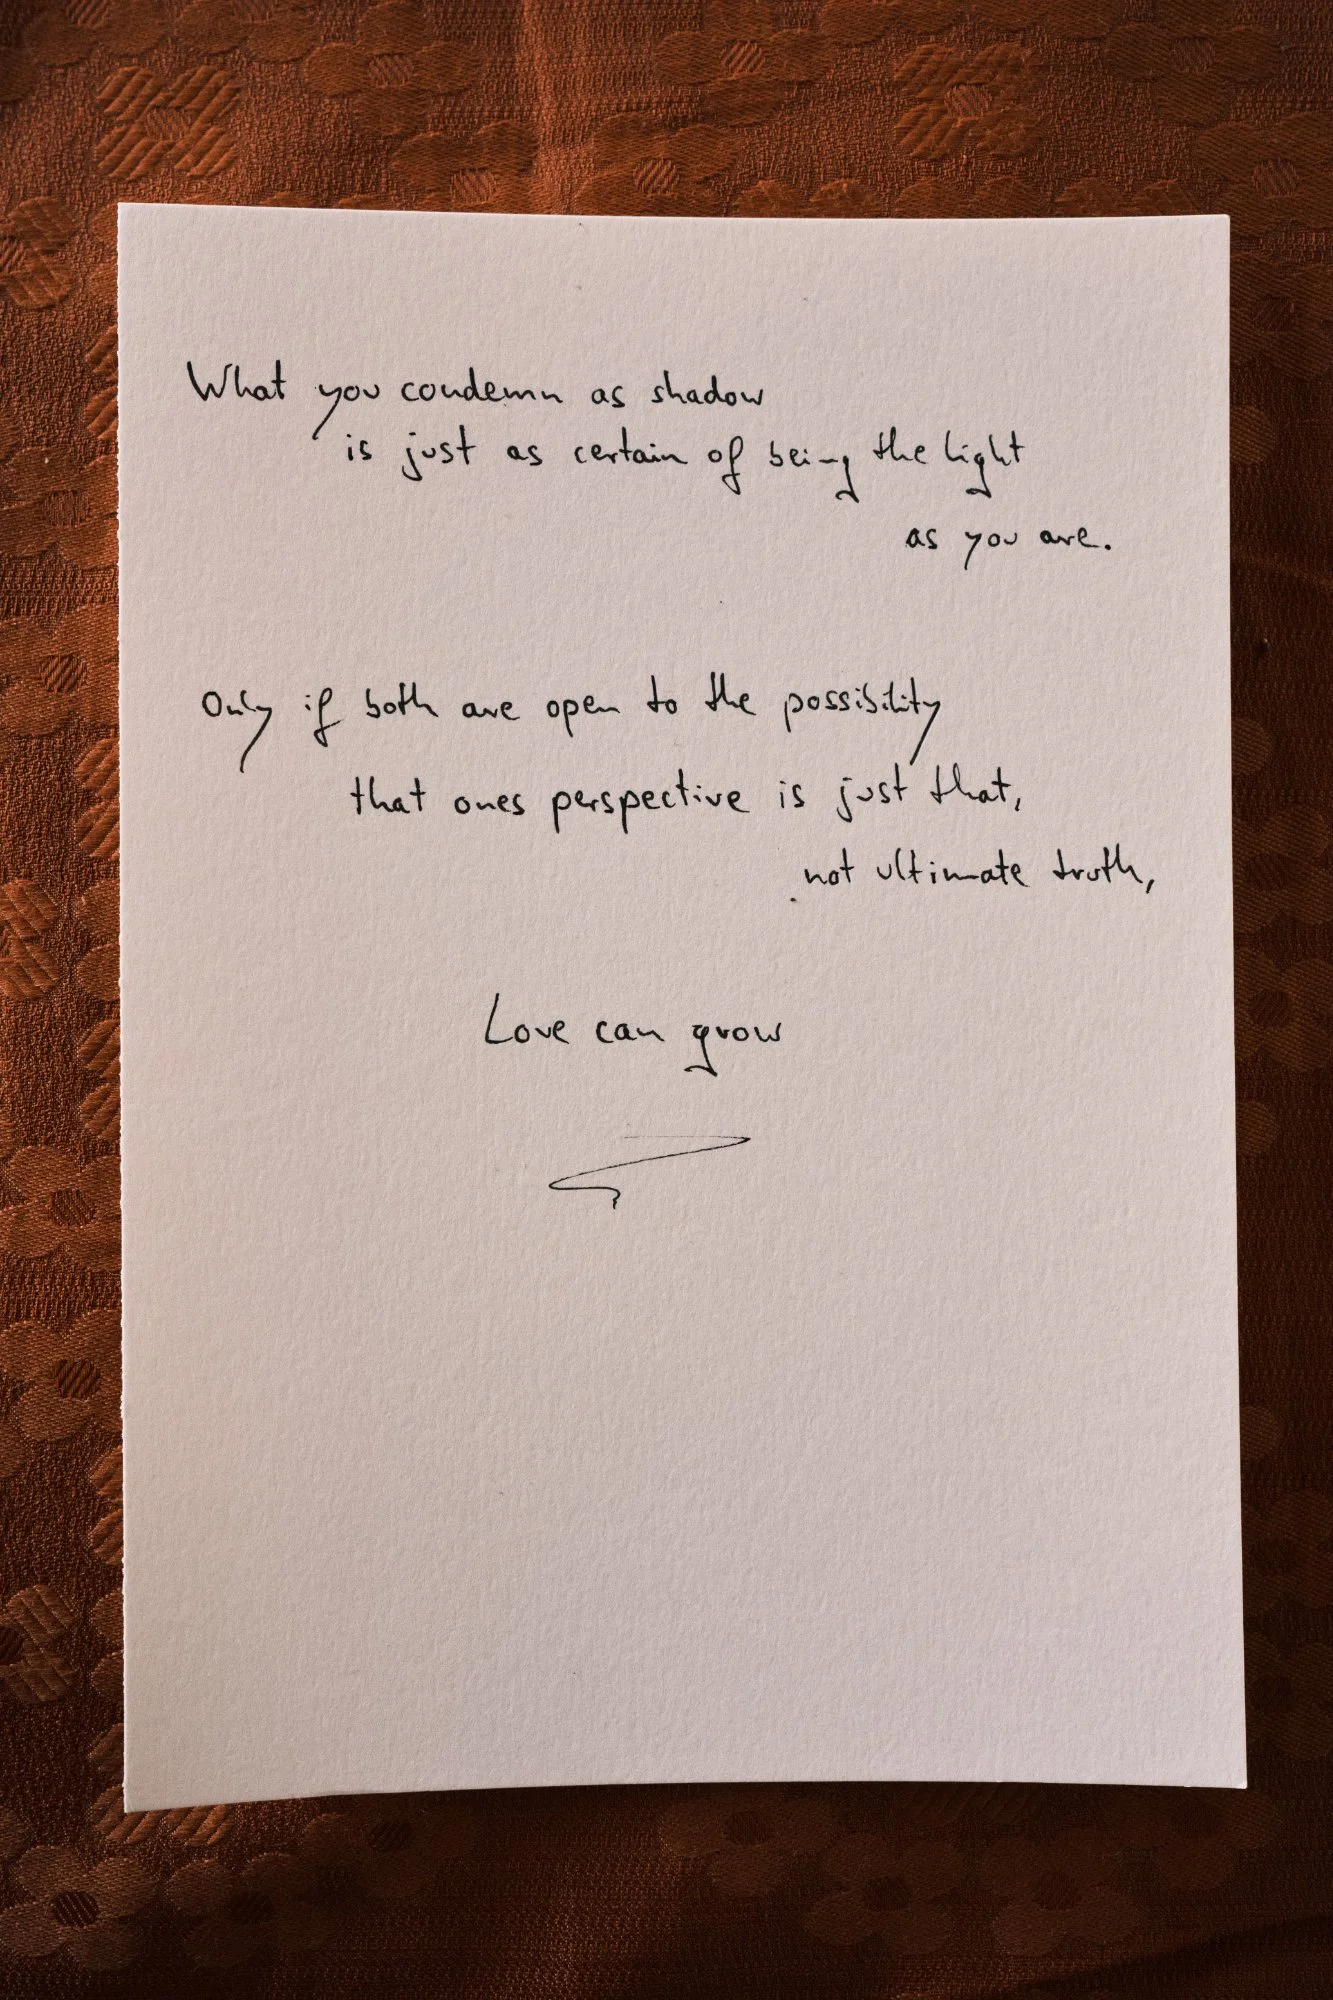 What you condemn as shadow
is just as certain of being the light
as you are.
Only if both are open to the possibility
that ones perspective is just that,
not ultimate truth,
Love can grow